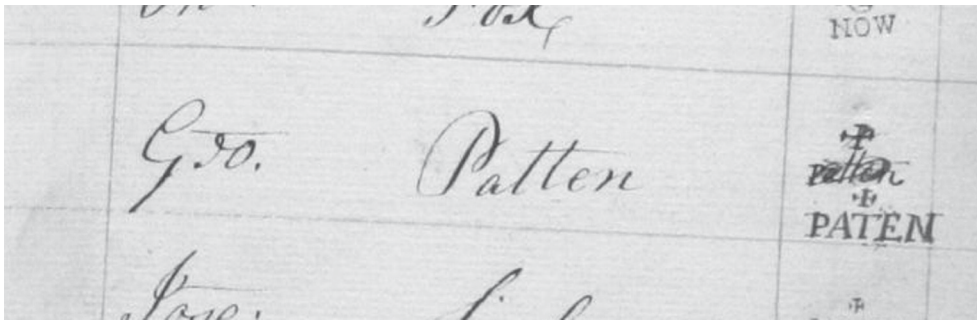 Fox
NOW
Geo. Patten
Patten
PATEN